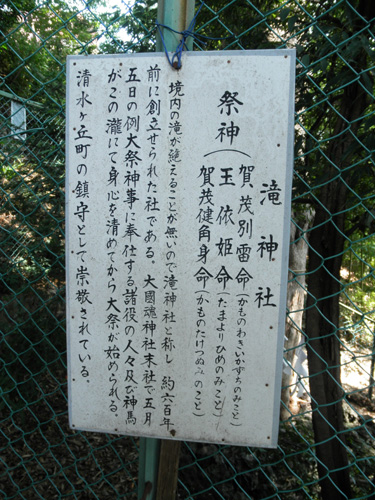 滝神社
祭神
賀茂別雷命(かものわきいかずちのみこと)
玉依姫命(たまよりひめのみこと)
賀茂健角身命(かものたけつぬみのこと)
境内の滝が絶えることが無いので滝神社と称し 約六百年
前に創立せられた社である。大國魂神社末社で五月
五日の例大祭神事に奉仕する諸役の人々及び神馬
がこの瀧にて身心を清めてから大祭が始められる。
清水ヶ丘町の鎮守として崇敬されている。